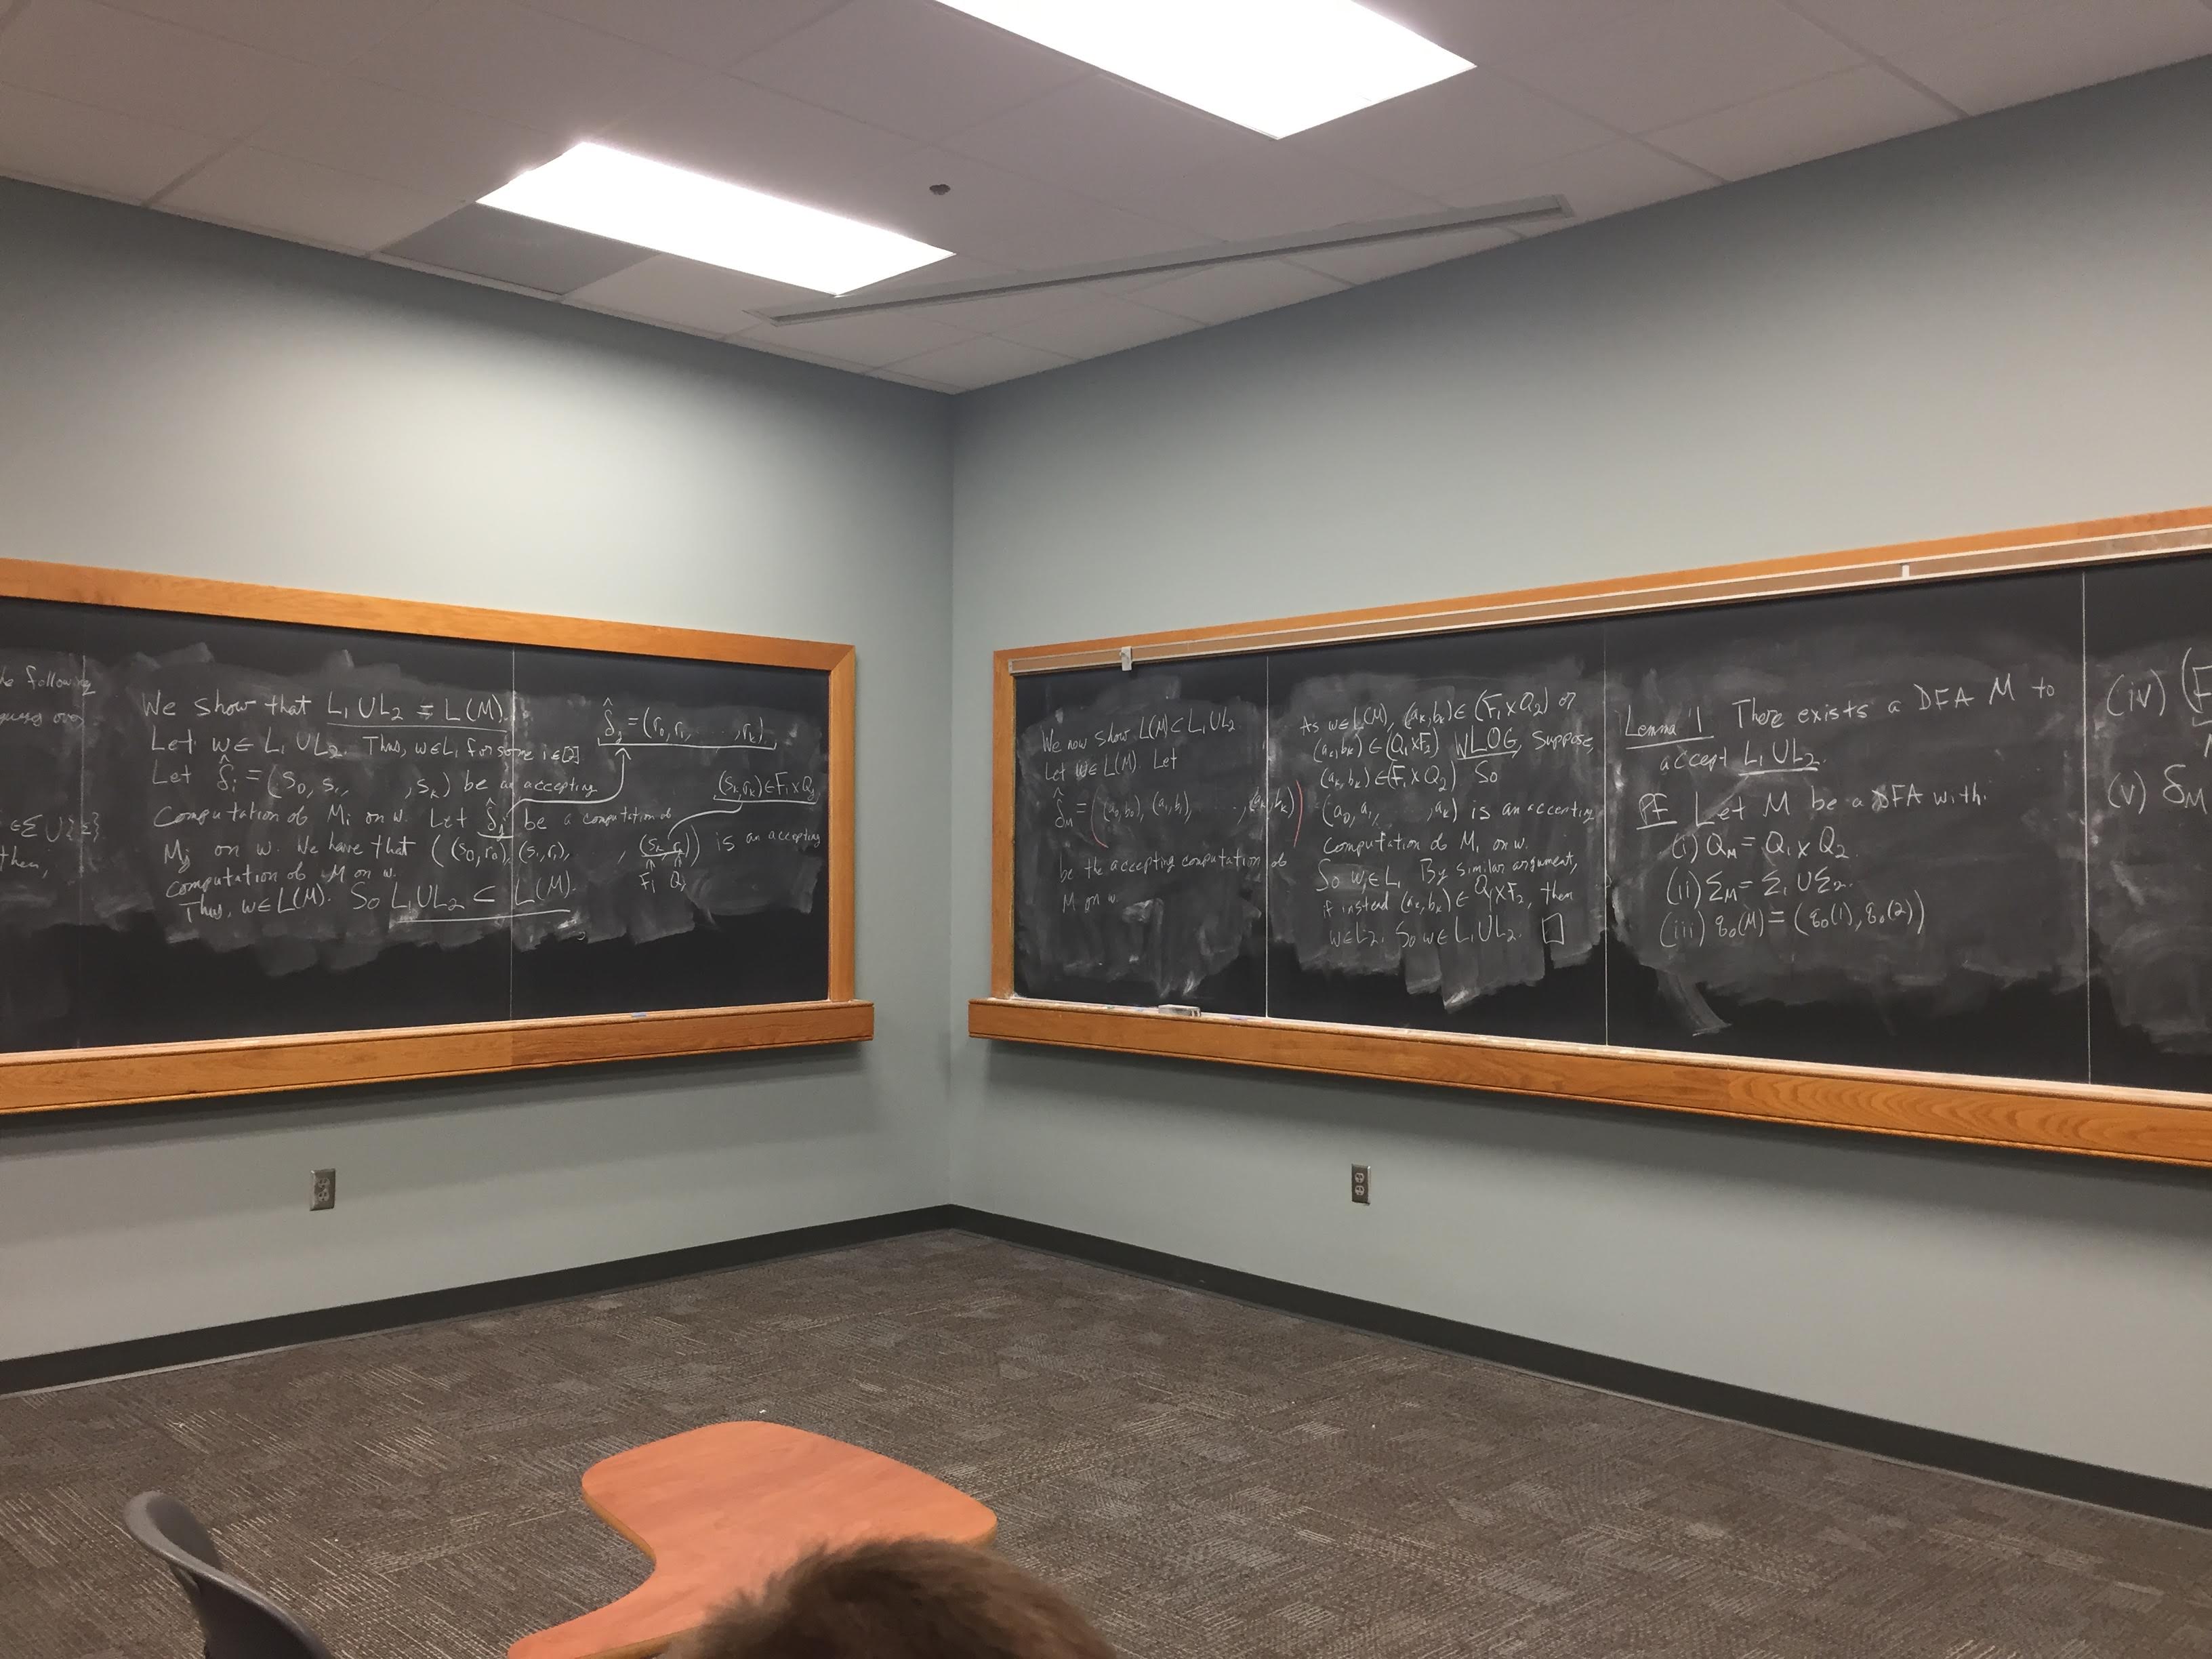 following
over
∈ Σ ∪ {ε}.
then,
We show that L₁ ∪ L₂ = L(M).
Let w ∈ L₁ ∪ L₂. Thus, w ∈ Lᵢ for some i ∈ [2]
Let δ̂ᵢ = (s₀, s₁, , sₖ) be a accepting
Computation of Mᵢ on w. Let δ̂ⱼ be a computation of
Mⱼ on w. We have that ((s₀, r₀), (s₁, r₁), , (sₖ, rₖ)) is an accepting
computation of M on w.
Thus, w ∈ L(M). So L₁ ∪ L₂ ⊂ L(M).
δ̂ⱼ = (r₀, r₁, ..., rₖ).
(sₖ, rₖ) ∈ F₁ × Qⱼ
F₁ Qⱼ
We now show L(M) ⊂ L₁ ∪ L₂
Let w ∈ L(M). Let
δ̂_M = ((a₀, b₀), (a₁, b₁), ..., (aₖ, bₖ))
be the accepting computation of
M on w.
As w ∈ L(M), (aₖ, bₖ) ∈ (F₁ × Q₂) or
(aₖ, bₖ) ∈ (Q₁ × F₂) WLOG, suppose
(aₖ, bₖ) ∈ (F₁ × Q₂) So
(a₀, a₁, , aₖ) is an accepting
Computation of M₁ on w.
So w ∈ L₁. By similar argument,
if instead (aₖ, bₖ) ∈ Q₁ × F₂, then
w ∈ L₂. So w ∈ L₁ ∪ L₂. □
Lemma 1 There exists a DFA M to
accept L₁ ∪ L₂.
Pf Let M be a DFA with:
(i) Q_M = Q₁ × Q₂.
(ii) Σ_M = Σ₁ ∪ Σ₂.
(iii) q₀(M) = (q₀(1), q₀(2))
(iv) (F
(v) δ_M